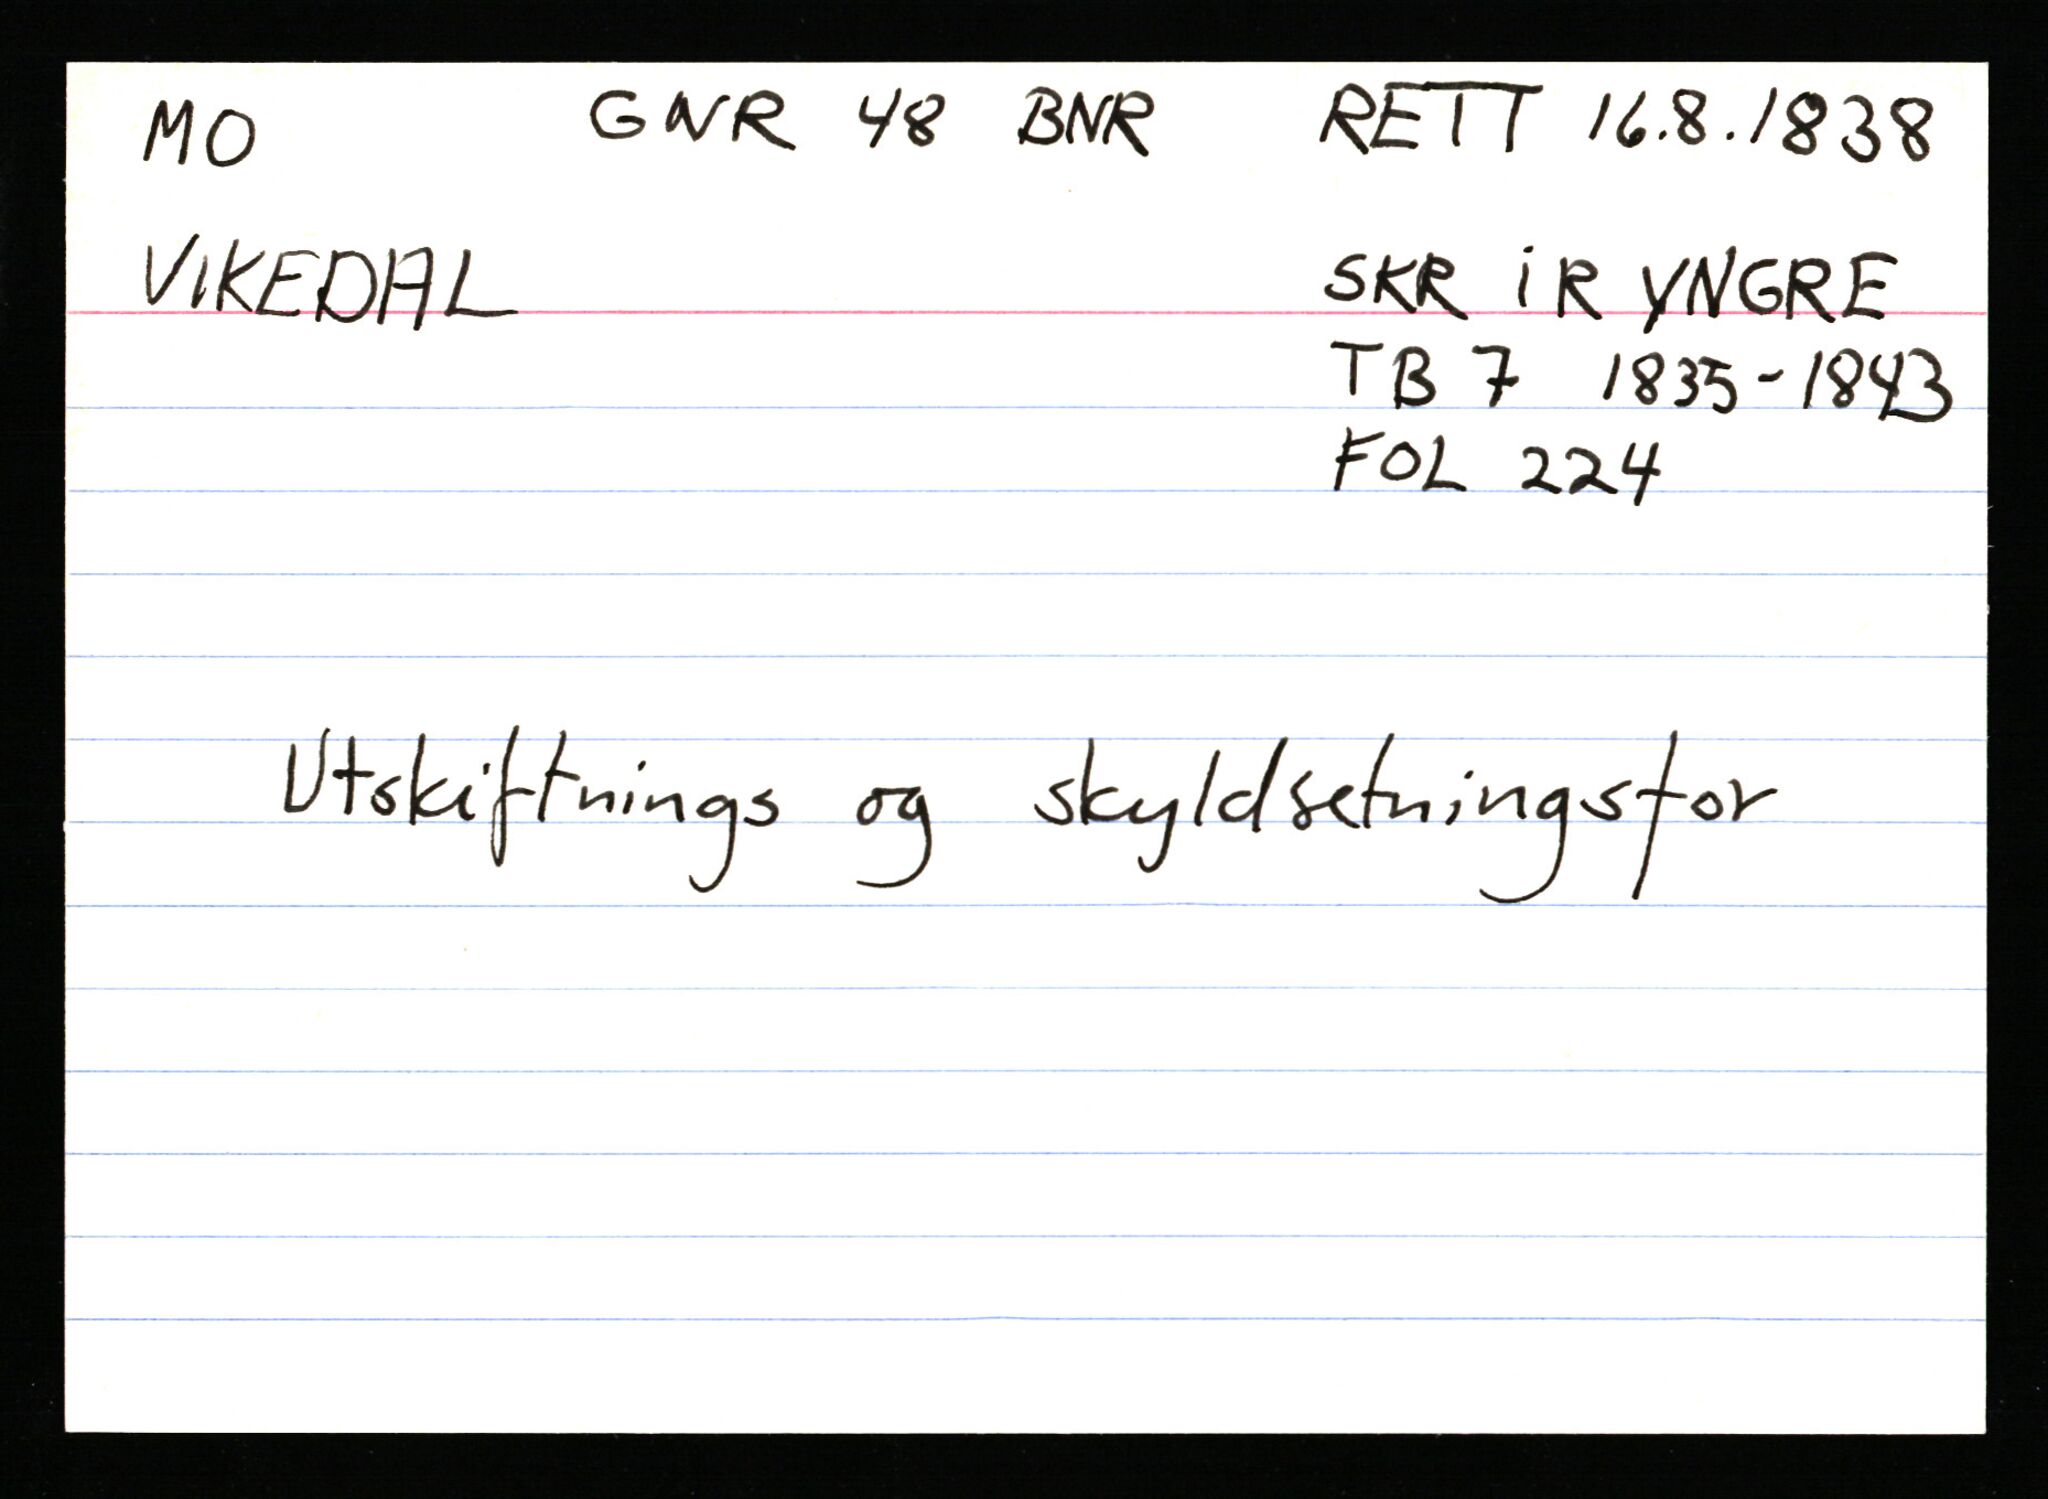 MO GNR 48 BNR RETT 16.8.1838
VIKEDAL SKR i R YNGRE
TB 7 1835-1843
FOL 224
Utskiftnings og skyldsetningsfor